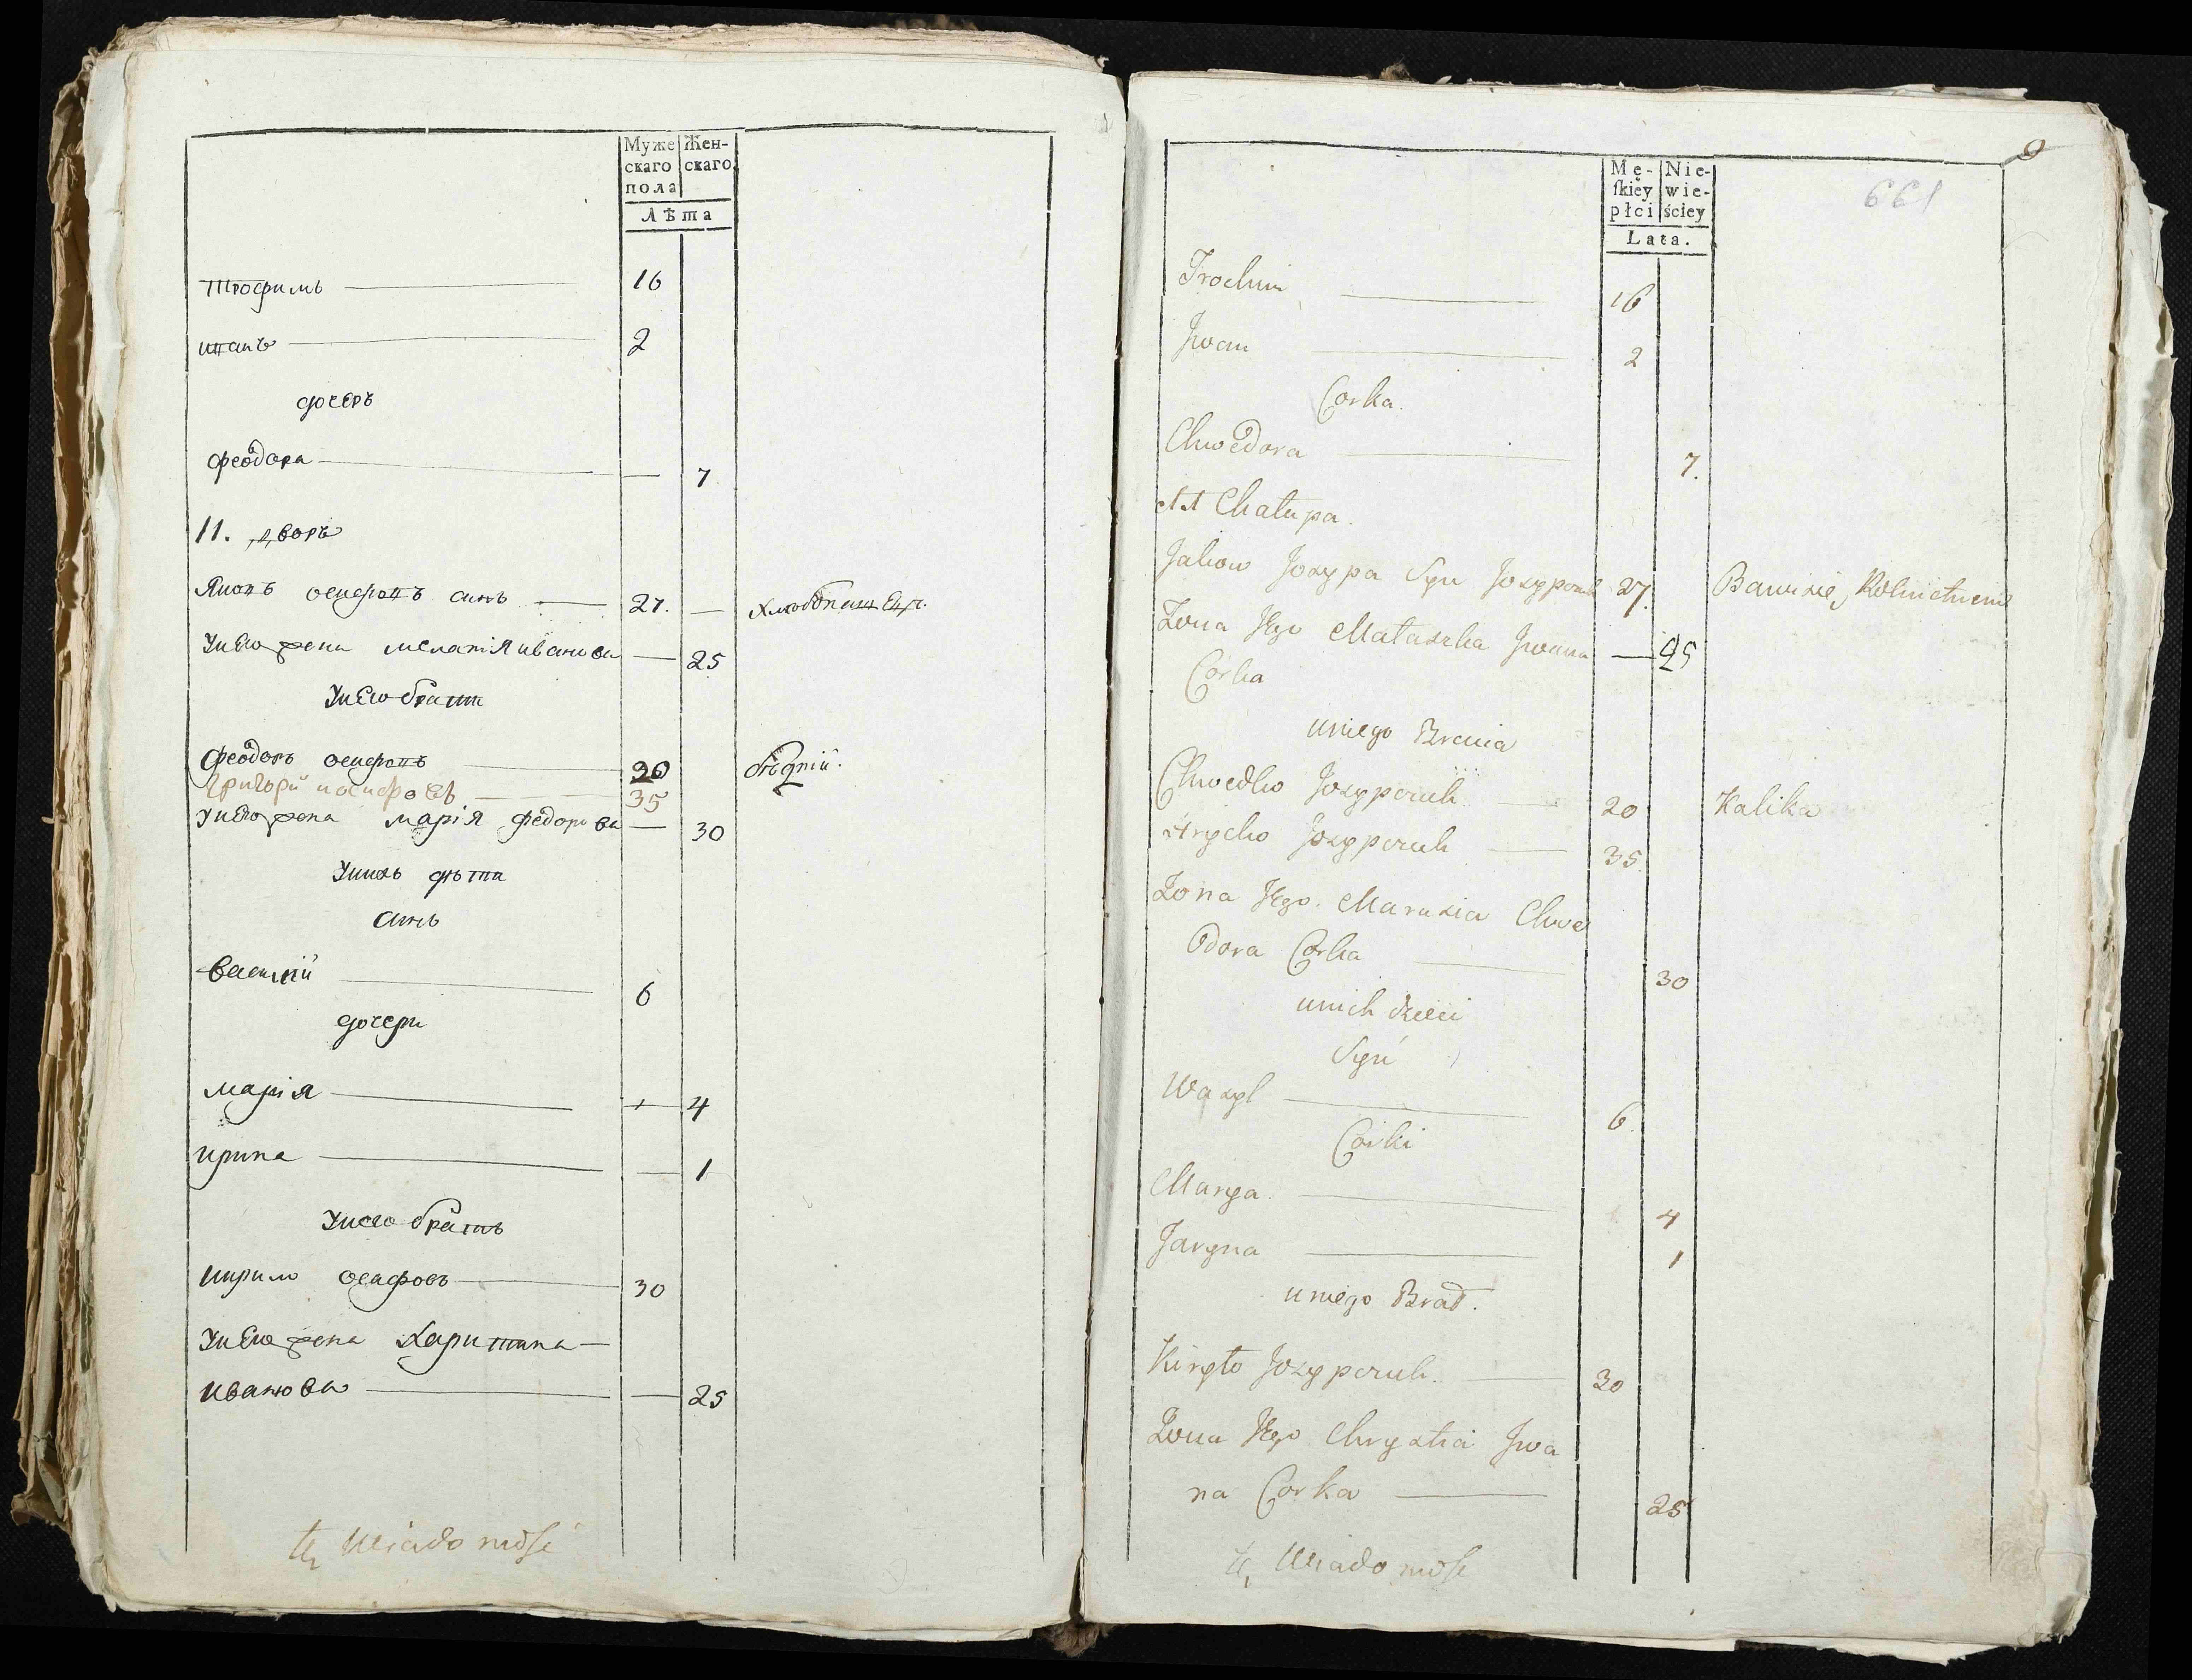 Муже
скаго
пола
Жен-
скаго
Лѣта
Трофимъ 16
иванъ 2
дочеръ
феодора — 7
11. дворъ
Яковъ осифовъ синъ — 27. —
У него жена мелания иванова — 25
У него брати
Феодоръ осифовъ 20 бѣдній.
Григорій иосифовъ — 35
У него жена марія федорова — 30
У нихъ дѣти
синъ
василій 6
дочери
марія — 4
ирина — 1
У него братъ
кирило осифовъ 30
У него жена харитина —
иванова — 25
tę Wiadomość
9
661
Mę-
skiey
płci
Nie-
wie-
ściey
Lata.
Trochim 16
Jwan 2
Corka.
Chwedora 7.
11 Chałupa.
Jakow Jozypa Syn Jozyponk 27. Bawi się Rolnictwem
Zona Jego Małaszka Jwana — 25
Corka
u niego Bracia
Chwedko Jozyperuk 20 Kalika
Hryćko Jozyperuk 35
Zona Jego. Marusia Chwe
dora Corka 30
u nich dzieci
Syn
Wasyl 6
Corki
Marya. 4
Jaryna 1
u niego Brat.
Kiryło Jozyperuk. 30
Zona Jego Chrystia Jwa
na Corka 25
tę Wiadomość